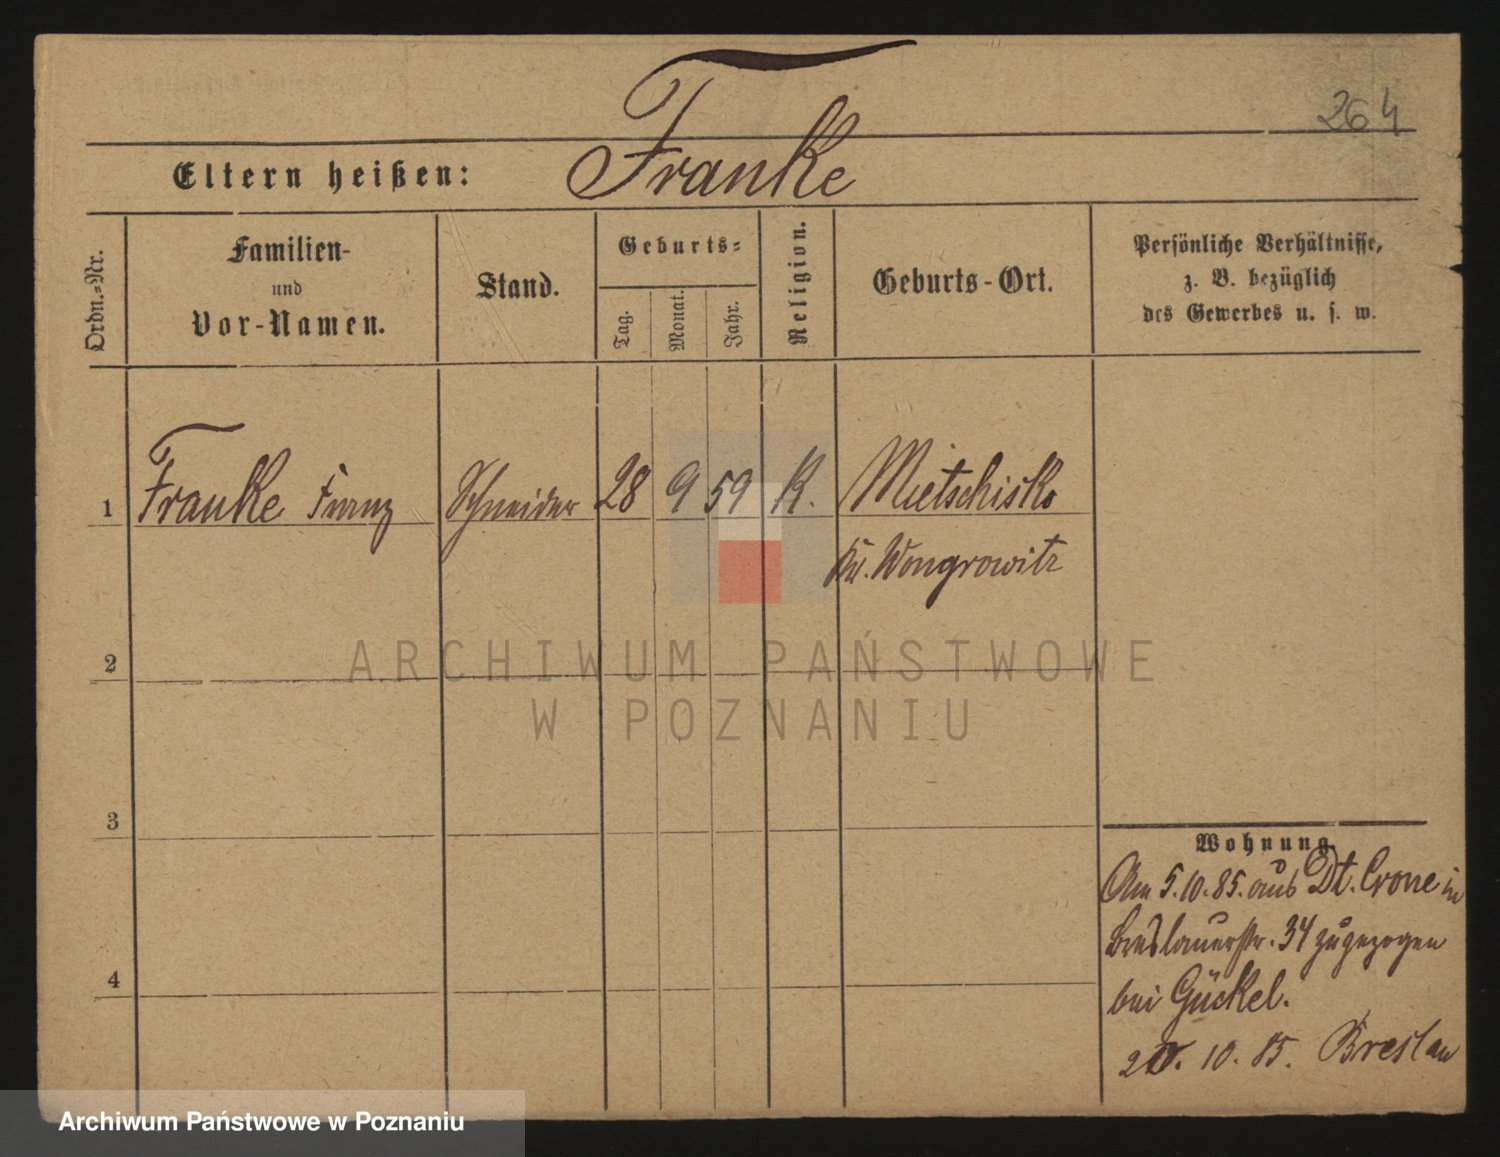 Franke
264
Eltern heißen:
Ordn.-Nr.
Familien-
und
Vor-Namen.
Stand.
Geburts-
Tag.
Monat.
Jahr.
Religion.
Geburts-Ort.
Persönliche Verhältnisse,
z. B. bezüglich
des Gewerbes u. s. w.
1 Franke Franz Schneider 28 9 59 K. Mietschisko
Kr. Wongrowitz
ARCHIWUM PAŃSTWOWE
W POZNANIU
2
3
4
Wohnung.
Am 5.10.85. aus Dt. Crone in
Breslauerstr. 34 zugezogen
bei Gückel.
10. 85. Breslau
Archiwum Państwowe w Poznaniu